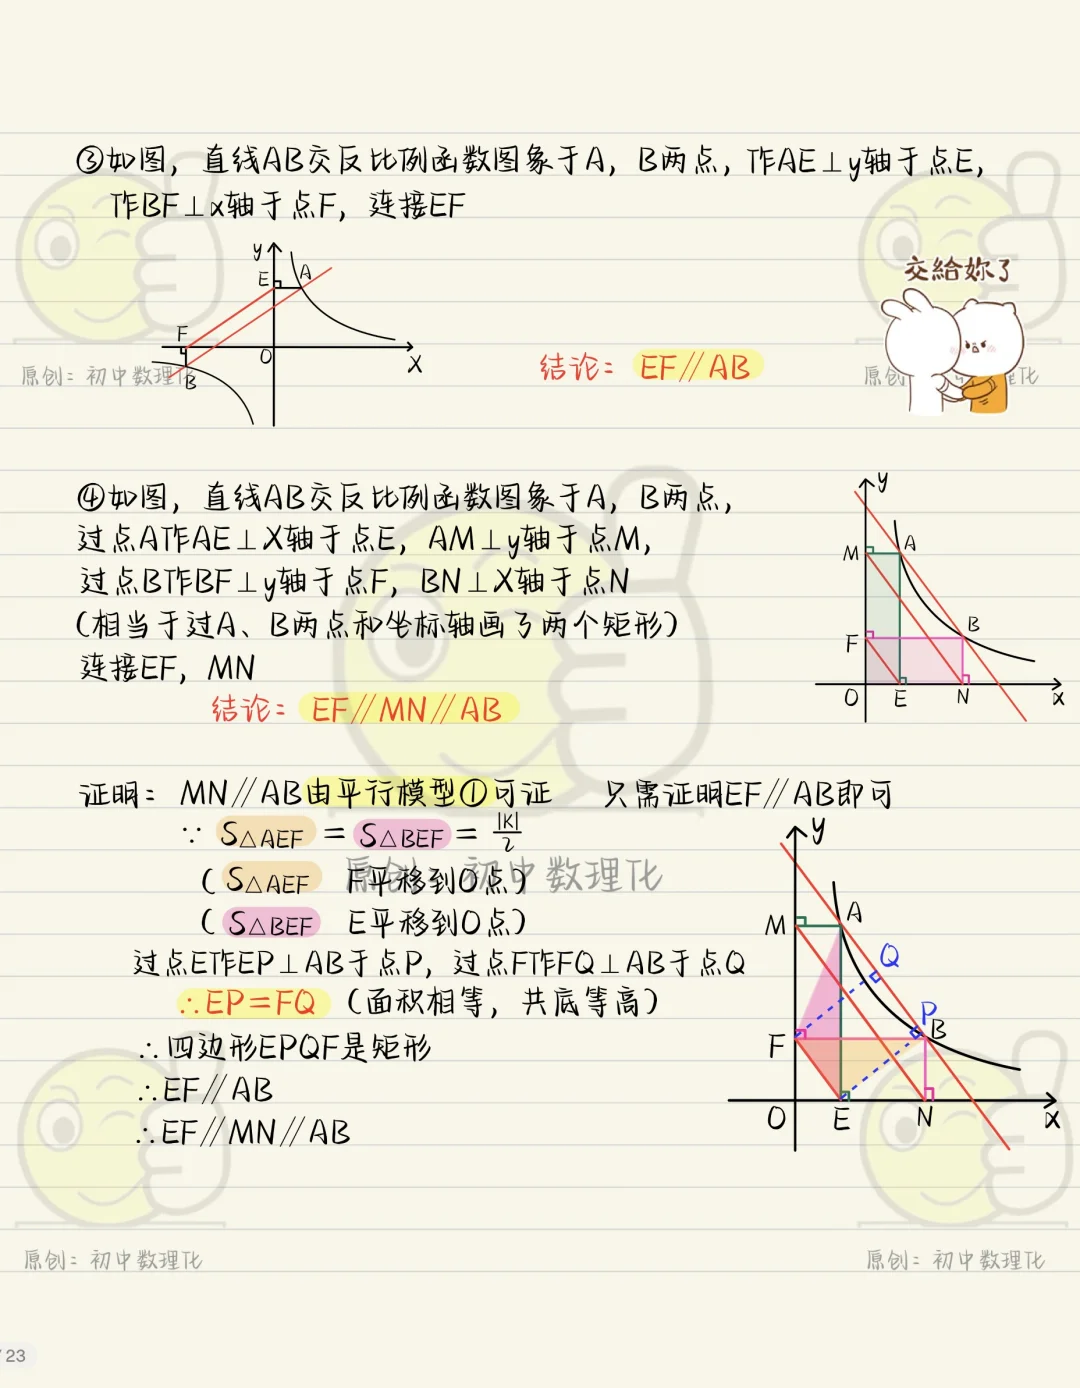 ③如图，直线AB交反比例函数图象于A，B两点，作AE⊥y轴于点E，
作BF⊥x轴于点F，连接EF
y
E
A
F
O
X
B
结论：EF∥AB
交給妳了
原创：初中数理化
原创：初中数理化
④如图，直线AB交反比例函数图象于A，B两点，
过点A作AE⊥X轴于点E，AM⊥y轴于点M，
过点B作BF⊥y轴于点F，BN⊥X轴于点N
（相当于过A、B两点和坐标轴画了两个矩形）
连接EF，MN
结论：EF∥MN∥AB
y
M
A
F
B
O
E
N
x
证明：MN∥AB由平行模型①可证 只需证明EF∥AB即可
∵ S△AEF = S△BEF = |K|/2
（S△AEF F平移到O点）
（S△BEF E平移到O点）
原创：初中数理化
过点E作EP⊥AB于点P，过点F作FQ⊥AB于点Q
∴EP=FQ（面积相等，共底等高）
∴四边形EPQF是矩形
∴EF∥AB
∴EF∥MN∥AB
y
M
A
Q
P
F
B
O
E
N
x
原创：初中数理化
原创：初中数理化
/23